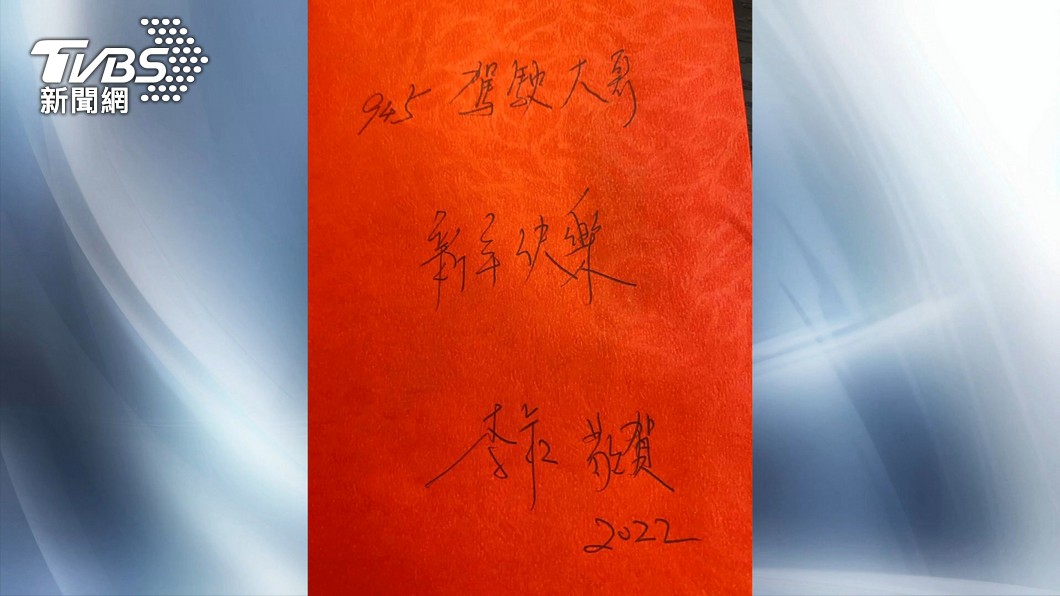 TVBS
新聞網
945 駕駛大哥
新年快樂
李 敬賀
2022